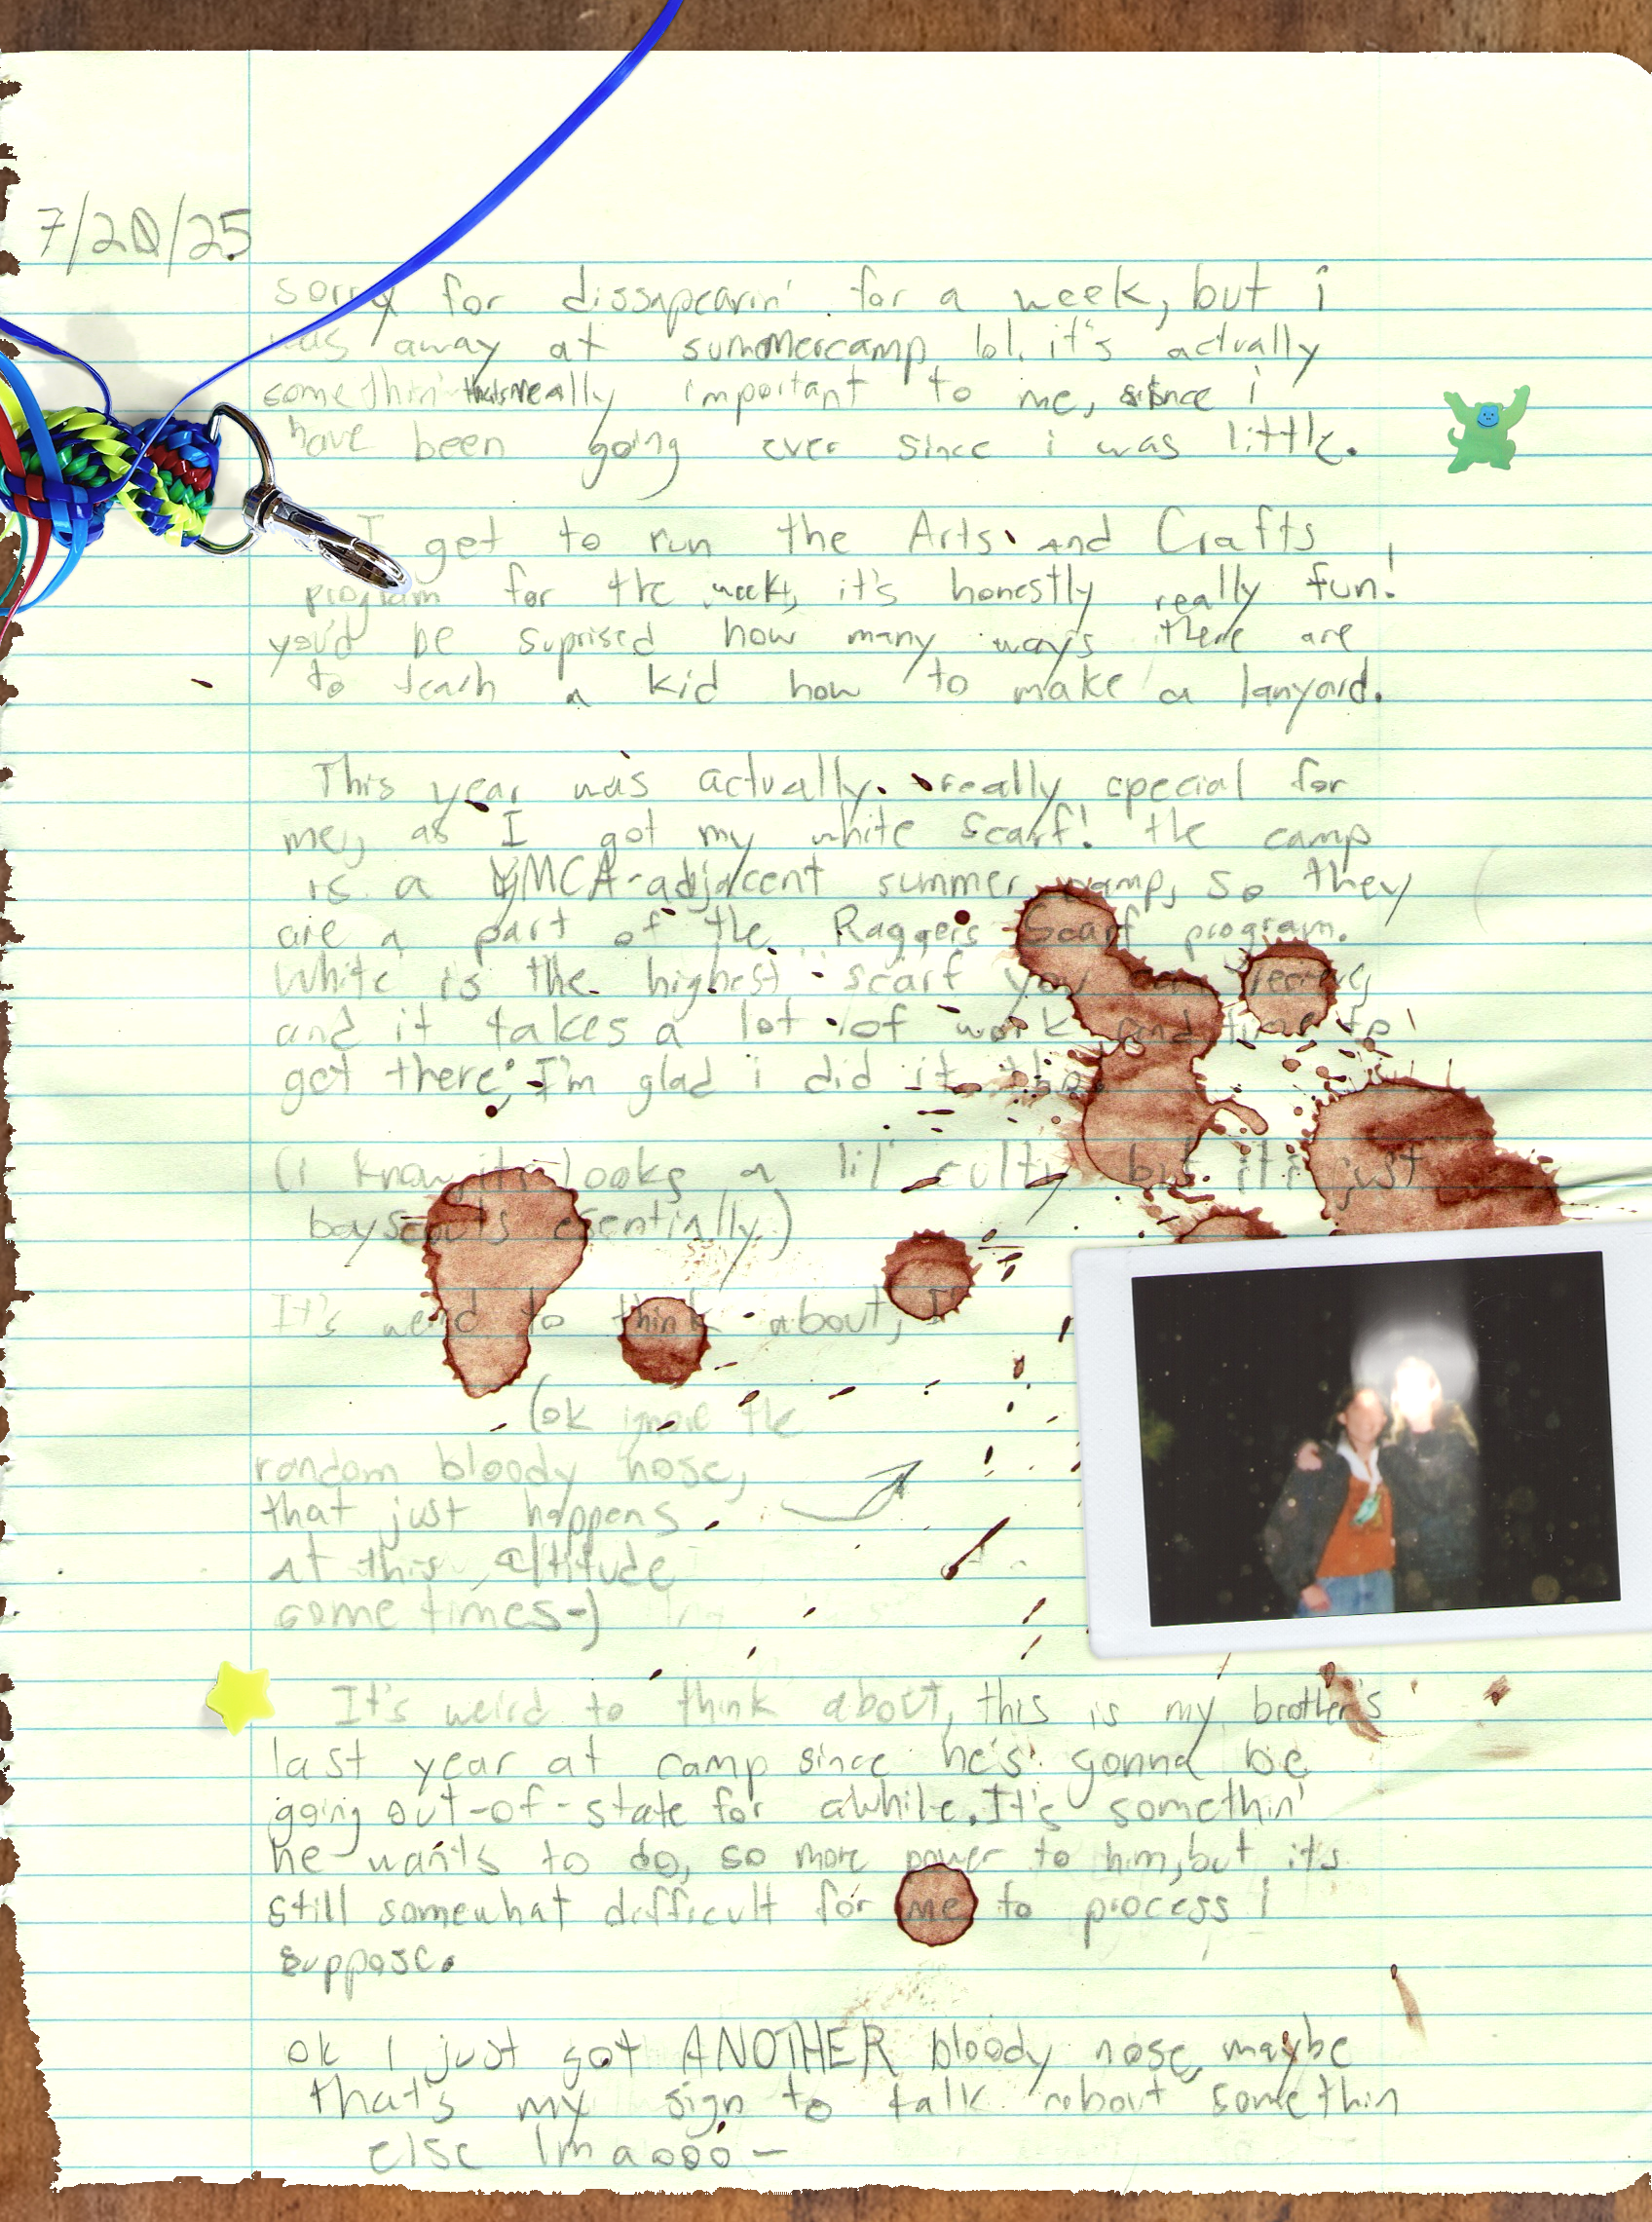 7/20/25
sorry for dissapearin' for a week, but i
was away at summercamp lol. it's actually
somethin' thats really important to me, since i
have been going ever since i was little.
I get to run the Arts and Crafts
program for the week, it's honestly really fun!
you'd be suprised how many ways there are
to teach a kid how to make a lanyard.
This year was actually really special for
me, as I got my white scarf! the camp
is a YMCA-adjacent summer camp, so they
are a part of the Raggers Scarf program.
White is the highest scarf you can recieve,
and it takes a lot of work and time to
get there; I'm glad i did it tho.
(i know it looks a lil' culty but it's just
boyscouts esentially)
It's weird to think about, I
(ok ignore the
random bloody nose,
that just happens
at this altitude
some times-)
It's weird to think about, this is my brother's
last year at camp since he's gonna be
going out-of-state for awhile. It's somethin'
he wants to do, so more power to him, but its
still somewhat difficult for me to process I
suppose.
ok I just got ANOTHER bloody nose, maybe
that's my sign to talk about somethin
else lmaooo-